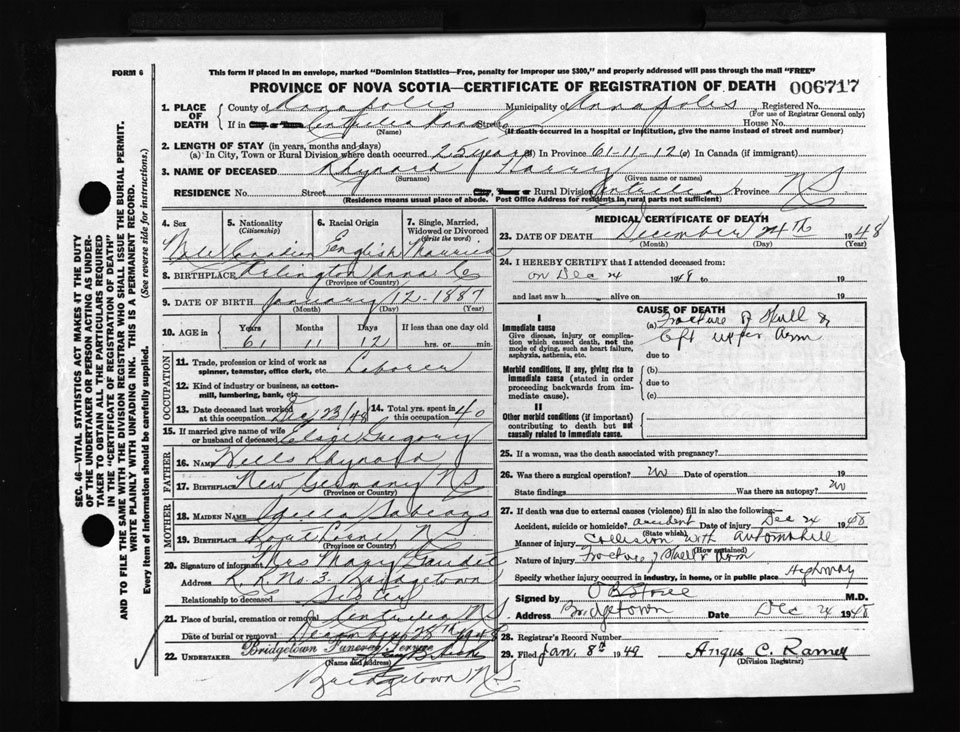 FORM 6
This form if placed in an envelope, marked "Dominion Statistics—Free, penalty for improper use $300," and properly addressed will pass through the mail "FREE"
PROVINCE OF NOVA SCOTIA—CERTIFICATE OF REGISTRATION OF DEATH 006717
1. PLACE OF DEATH County of Annapolis Municipality of Annapolis Registered No.
(For use of Registrar General only)
If in City or Town Centrelea Anna Co Street House No.
(Name) (If death occurred in a hospital or institution, give the name instead of street and number)
2. LENGTH OF STAY (in years, months and days)
(a) In City, Town or Rural Division where death occurred 25 years (b) In Province 61-11-12 (c) In Canada (if immigrant)
3. NAME OF DECEASED Harry
(Surname) (Given name or names)
RESIDENCE No. Street City, Town or Rural Division Centrelea Province N.S.
(Residence means usual place of abode. Post Office Address for residents in rural parts not sufficient)
4. Sex 5. Nationality (Citizenship) 6. Racial Origin 7. Single, Married, Widowed or Divorced (Write the word)
Male Canadian English Married
8. BIRTHPLACE Arlington Anna Co
(Province or Country)
9. DATE OF BIRTH January 12-1887
(Month) (Day) (Year)
10. AGE in Years Months Days If less than one day old
61 11 12 hrs. or min.
OCCUPATION
11. Trade, profession or kind of work as spinner, teamster, office clerk, etc. Laborer
12. Kind of industry or business, as cotton-mill, lumbering, bank, etc.
13. Date deceased last worked at this occupation Dec 23/48 14. Total yrs. spent in this occupation 40
15. If married give name of wife or husband of deceased Gregory
FATHER
16. NAME Wells
17. BIRTHPLACE New Germany N S
(Province or Country)
MOTHER
18. MAIDEN NAME
19. BIRTHPLACE N.S.
(Province or Country)
20. Signature of informant Mrs Mary
Address R.R. No 3 Bridgetown
Relationship to deceased Sister
21. Place of burial, cremation or removal Centrelea N.S.
Date of burial or removal December 28th 1948
22. UNDERTAKER Bridgetown Funeral Service
(Name and Address)
Bridgetown N.S.
MEDICAL CERTIFICATE OF DEATH
23. DATE OF DEATH December 24TH 1948
(Month) (Day) (Year)
24. I HEREBY CERTIFY that I attended deceased from:
on Dec 24 1948 to 19
and last saw h alive on 19
CAUSE OF DEATH
I
Immediate cause
Give disease, injury or complication which caused death, not the mode of dying, such as heart failure, asphyxia, asthenia, etc.
(a) Fracture of Skull &
left upper arm
due to
Morbid conditions, if any, giving rise to immediate cause (stated in order proceeding backwards from immediate cause).
(b)
due to
(c)
II
Other morbid conditions (if important) contributing to death but not causally related to immediate cause.
25. If a woman, was the death associated with pregnancy?
26. Was there a surgical operation? no Date of operation 19
State findings Was there an autopsy? no
27. If death was due to external causes (violence) fill in also the following:—
Accident, suicide or homicide? accident Date of injury Dec 24 1948
(State which)
Manner of injury Collision with automobile
(How sustained)
Nature of injury Fracture of Skull & arm
Specify whether injury occurred in industry, in home, or in public place Highway
Signed by M.D.
Address Bridgetown Date Dec 24 1948
28. Registrar's Record Number
29. Filed Jan. 8th 1949 Angus C. Ramey
(Division Registrar)
SEC. 46—VITAL STATISTICS ACT MAKES IT THE DUTY
OF THE UNDERTAKER OR PERSON ACTING AS UNDER-
TAKER TO OBTAIN ALL THE PARTICULARS REQUIRED
IN THE "CERTIFICATE OF REGISTRATION OF DEATH"
AND TO FILE THE SAME WITH THE DIVISION REGISTRAR WHO SHALL ISSUE THE BURIAL PERMIT.
WRITE PLAINLY WITH UNFADING INK. THIS IS A PERMANENT RECORD.
Every item of information should be carefully supplied. (See reverse side for instructions.)